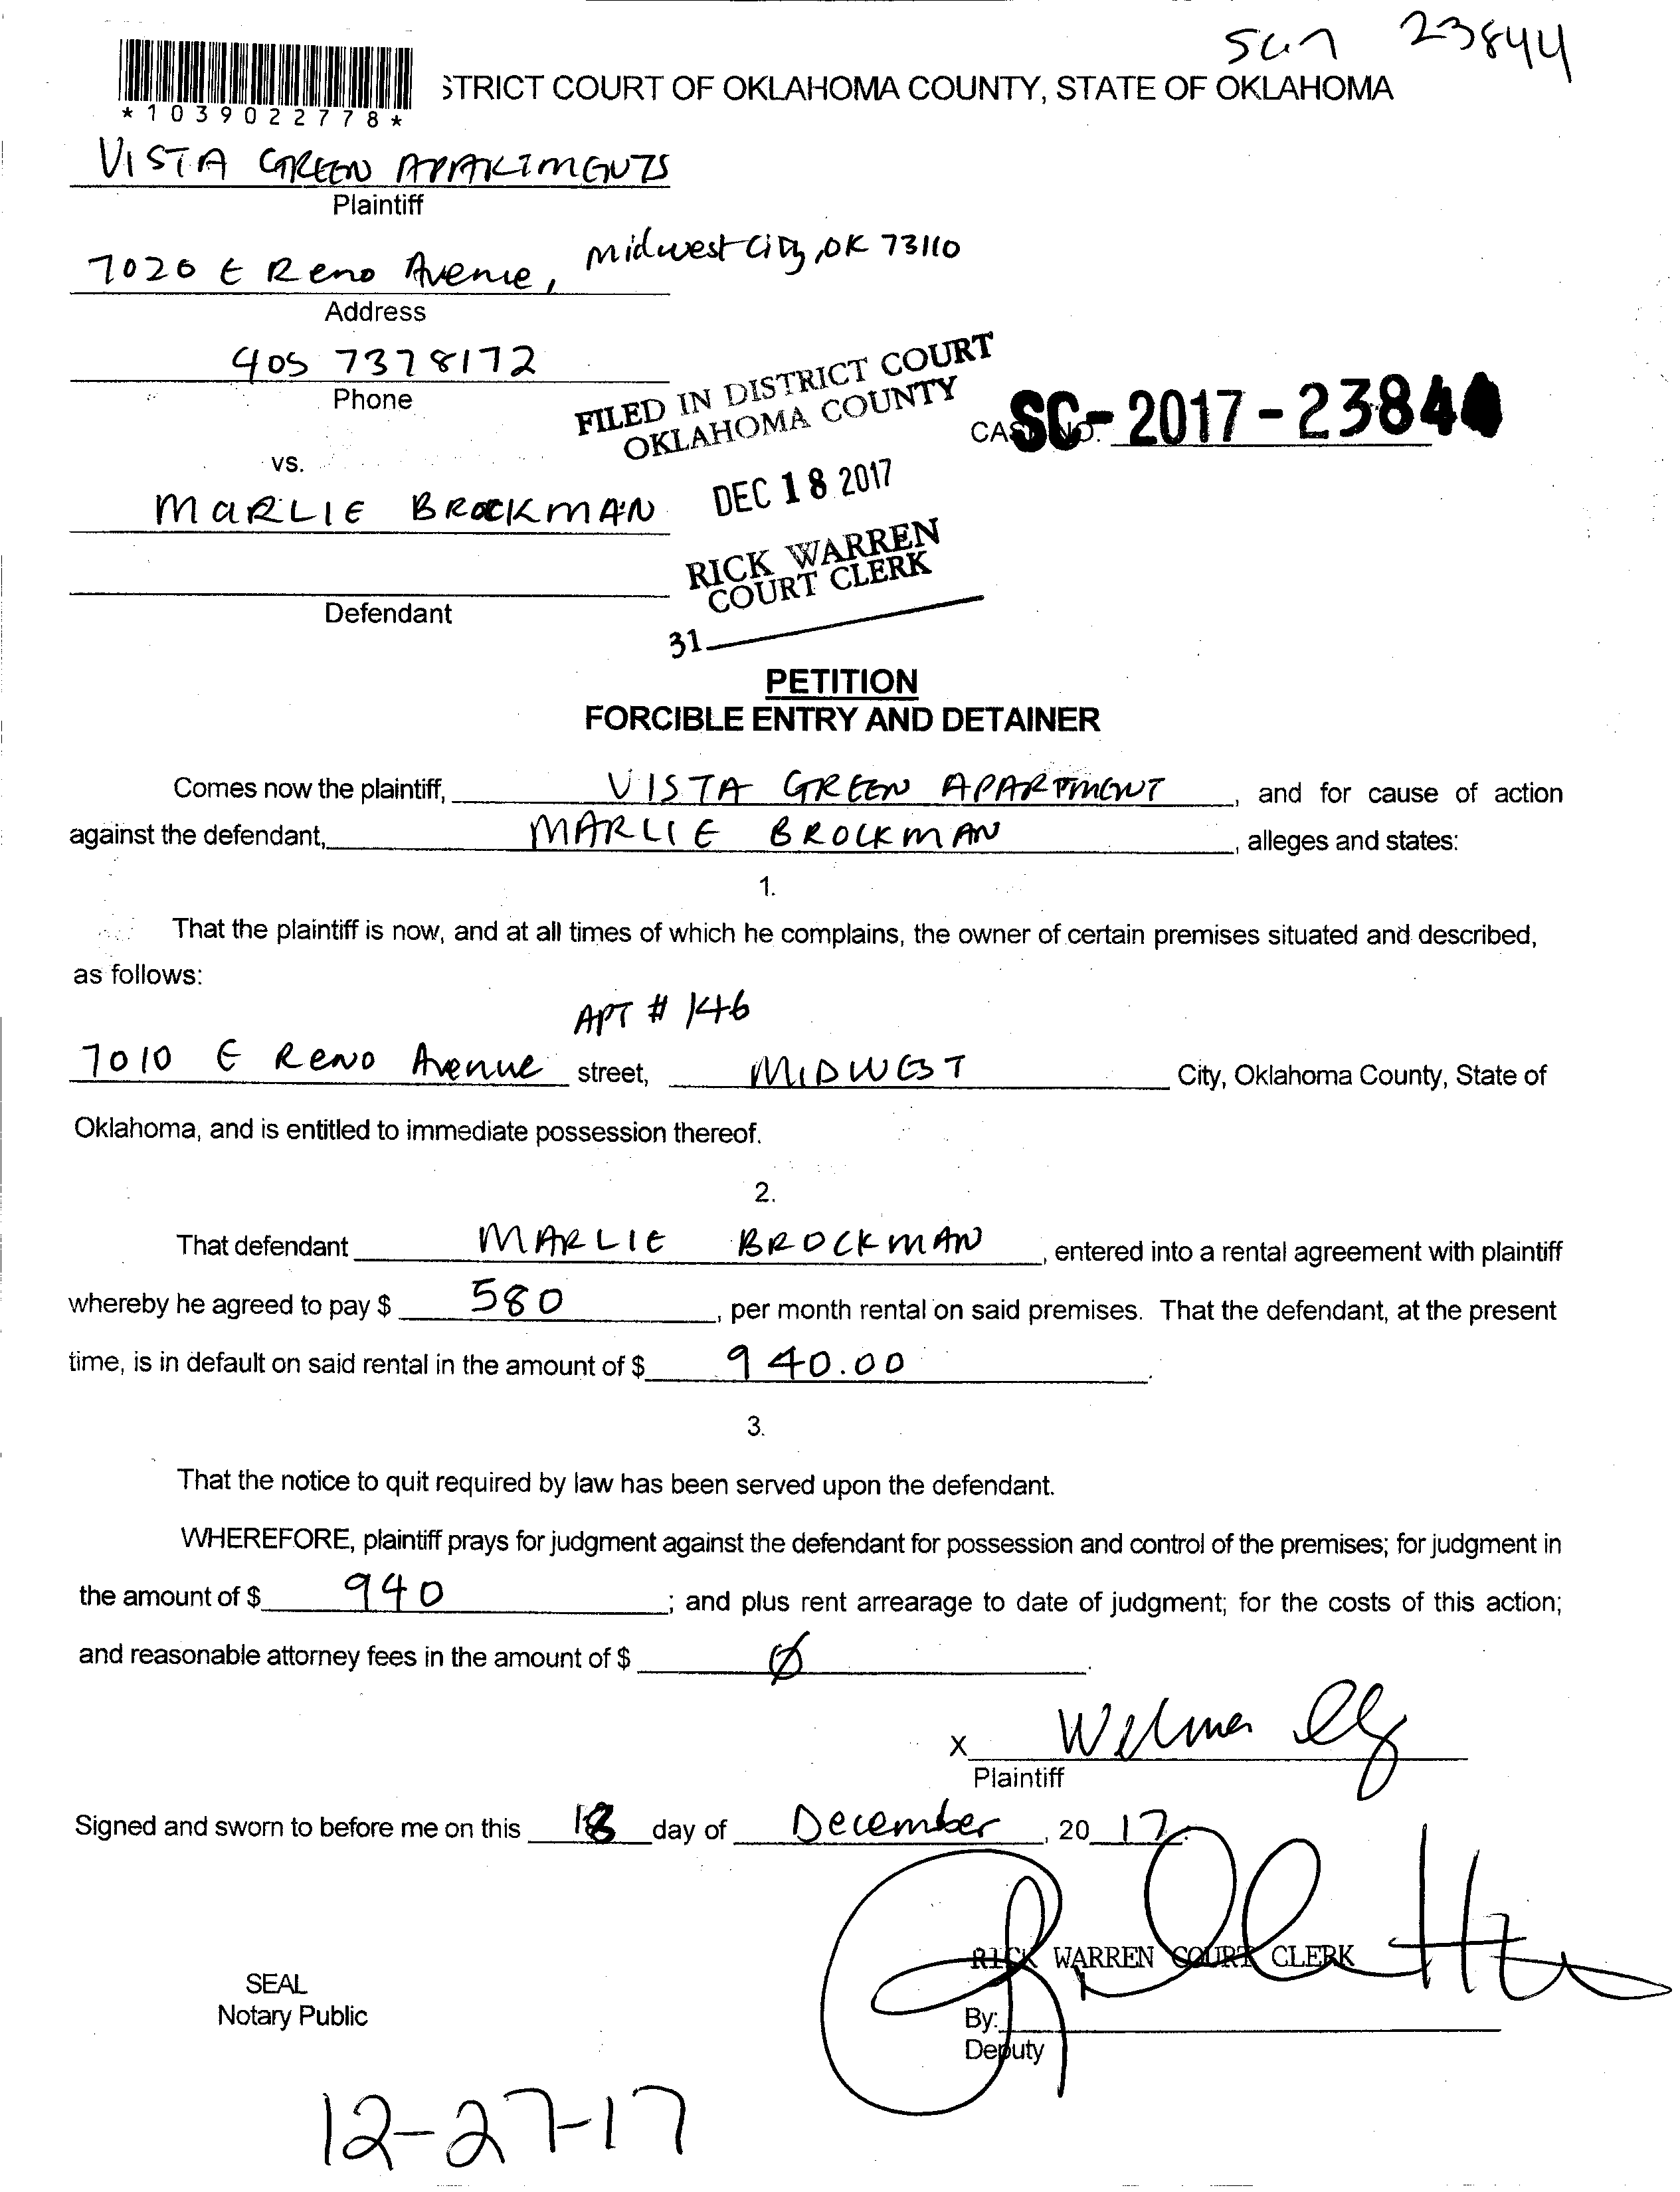 23844
*1039022778*
STRICT COURT OF OKLAHOMA COUNTY, STATE OF OKLAHOMA
VISTA GREEN APARTMENTS
Plaintiff
7020 E Reno Avenue, Midwest City, OK 73110
Address
405 7378172
Phone
FILED IN DISTRICT COURT
OKLAHOMA COUNTY
CASE NO. SC-2017-23844
vs.
DEC 18 2017
MARLIE BROCKMAN
RICK WARREN
COURT CLERK
Defendant
31
PETITION
FORCIBLE ENTRY AND DETAINER
Comes now the plaintiff, VISTA GREEN APARTMENT, and for cause of action
against the defendant, MARLIE BROCKMAN, alleges and states:
1.
That the plaintiff is now, and at all times of which he complains, the owner of certain premises situated and described,
as follows:
APT # 146
7010 E Reno Avenue street, MIDWEST City, Oklahoma County, State of
Oklahoma, and is entitled to immediate possession thereof.
2.
That defendant MARLIE BROCKMAN, entered into a rental agreement with plaintiff
whereby he agreed to pay $ 580, per month rental on said premises. That the defendant, at the present
time, is in default on said rental in the amount of $ 940.00.
3.
That the notice to quit required by law has been served upon the defendant.
WHEREFORE, plaintiff prays for judgment against the defendant for possession and control of the premises; for judgment in
the amount of $ 940; and plus rent arrearage to date of judgment; for the costs of this action;
and reasonable attorney fees in the amount of $ Ø.
X Wilma
Plaintiff
Signed and sworn to before me on this 18 day of December, 2017.
RICK WARREN COURT CLERK
SEAL
Notary Public
By:
Deputy
12-27-17